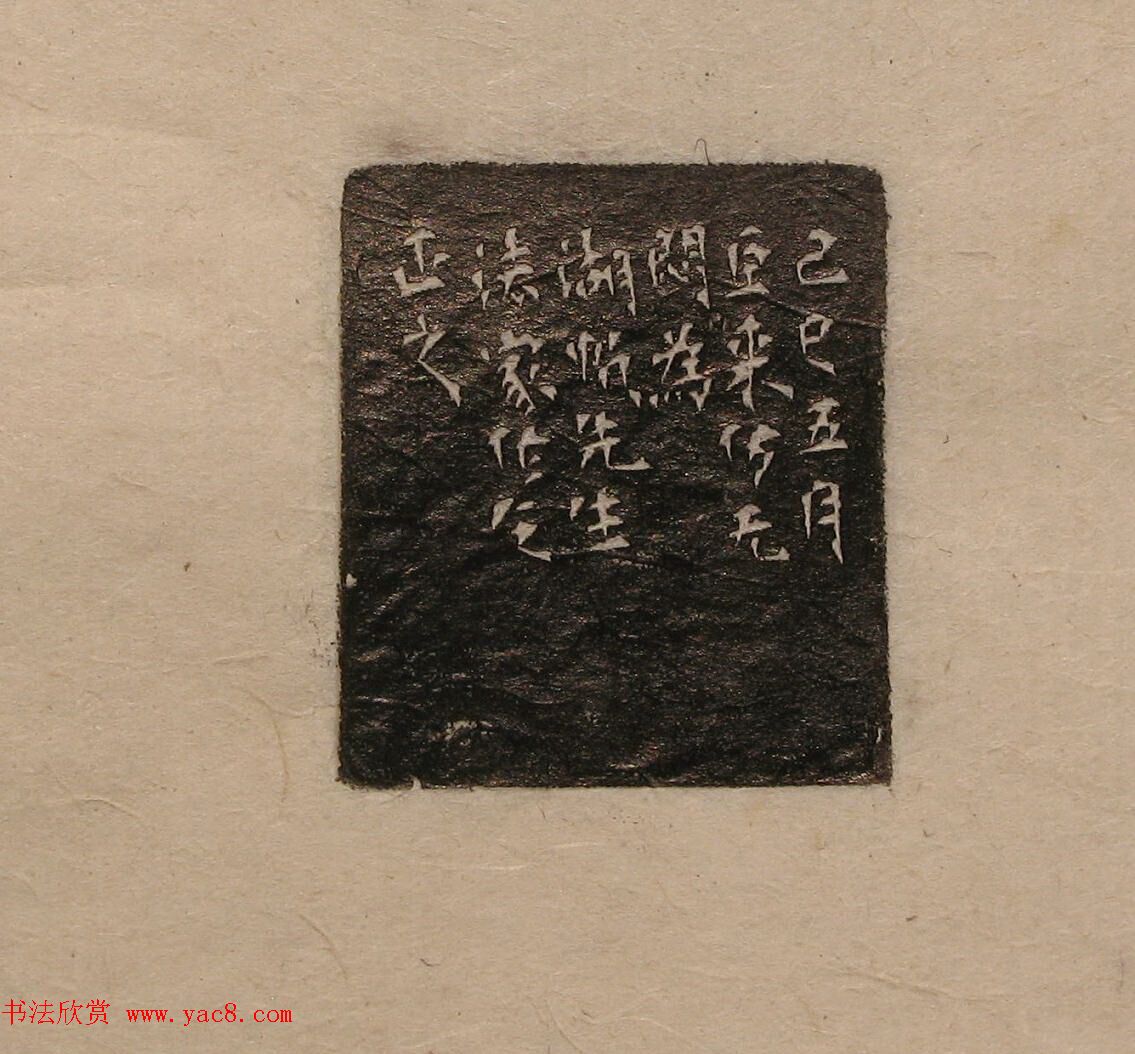 己巳五月
巨来仿元
閑為
湖帆先生
法家作乞
正之
书法欣赏 www.yac8.com